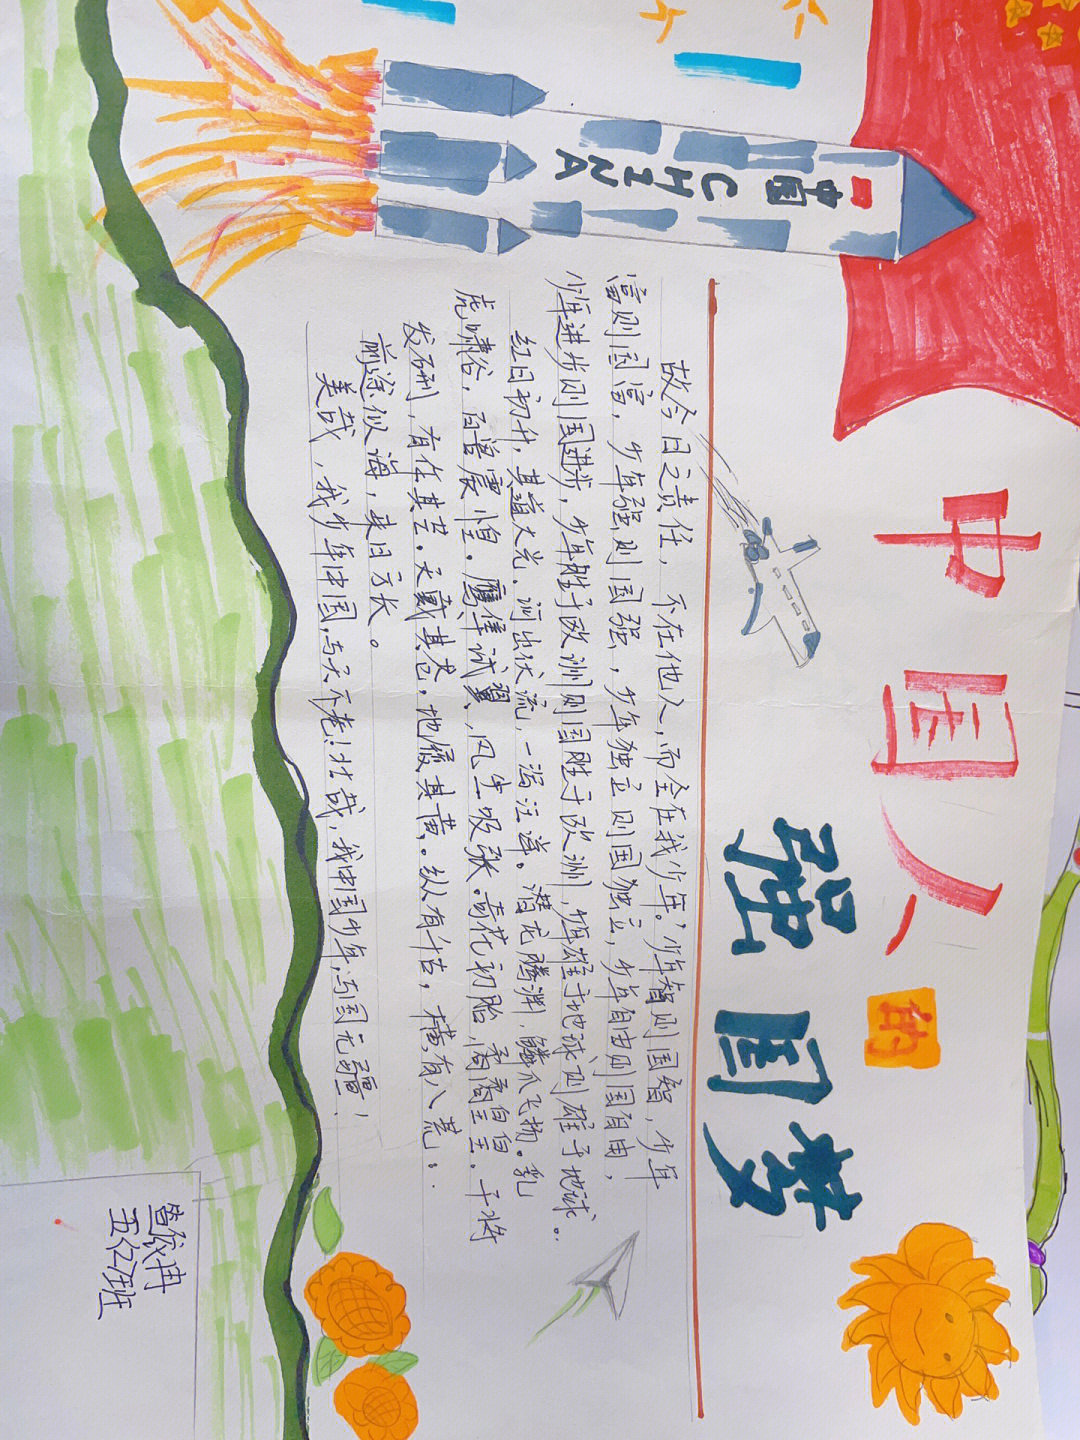 中国人的
强国梦
中国 CHINA
故今日之责任，不在他人，而全在我少年。少年智则国智，少年
富则国富，少年强则国强，少年独立则国独立，少年自由则国自由，
少年进步则国进步，少年胜于欧洲则国胜于欧洲，少年雄于地球则雄于地球。
红日初升，其道大光，河出伏流，一泻汪洋。潜龙腾渊，鳞爪飞扬。乳
虎啸谷，百兽震惶。鹰隼试翼，风尘吸张。奇花初胎，矞矞皇皇。干将
发硎，有作其芒。天戴其苍，地履其黄。纵有千古，横有八荒：
前途似海，来日方长。
美哉，我少年中国，与天不老！壮哉，我中国少年，与国无疆！
管依冉
五(2)班